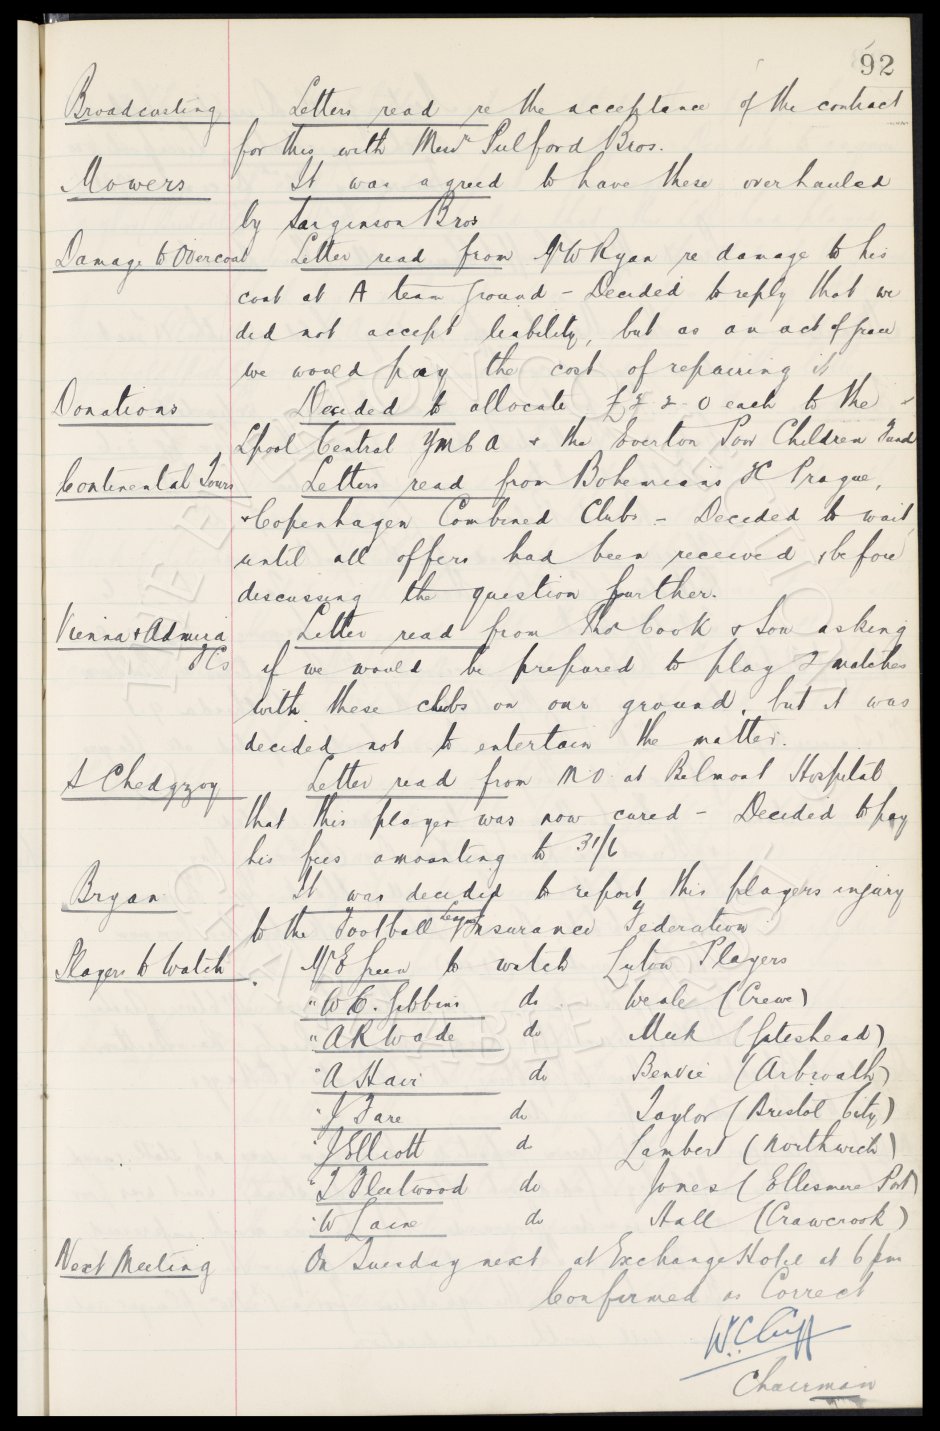 92
Broadcasting Letters read re the acceptance of the contract
for this with Messrs Pulford Bros.
Mowers It was agreed to have these overhauled
by Sarginson Bros
Damage to Overcoat Letter read from Mr W Ryan re damage to his
coat at A team ground - Decided to reply that we
did not accept liability, but as an act of grace
we would pay the cost of repairing it
Donations Decided to allocate £2-2-0 each to the
Lpool Central YMCA & the Everton Poor Children Fund
Continental Tours Letters read from Bohemians FC Prague,
& Copenhagen Combined Clubs - Decided to wait
until all offers had been received before
discussing the question further.
Vienna & Admira Letter read from Thos Cook & Son asking
FCs if we would be prepared to play 2 matches
with these clubs on our ground, but it was
decided not to entertain the matter.
S Chedgzoy Letter read from M O at Belmont Hospital
that this player was now cured - Decided to pay
his fees amounting to 31/6
Bryan It was decided to report this players injury
to the Football League Insurance Federation
Players to Watch Mr E Green to watch Luton Players
" W C. Gibbins do Weale (Crewe)
" A R Wade do Meek (Gateshead)
" A Hair do Bendie (Arbroath)
" J Fare do Taylor (Bristol City)
" J Elliott do Lambert (Northwich)
" T Fleetwood do Jones (Ellesmere Port)
" W Laine do Hall (Crawcrook)
Next Meeting On Tuesday next at Exchange Hotel at 6 pm
Confirmed as Correct
W.C. Cuff
Chairman